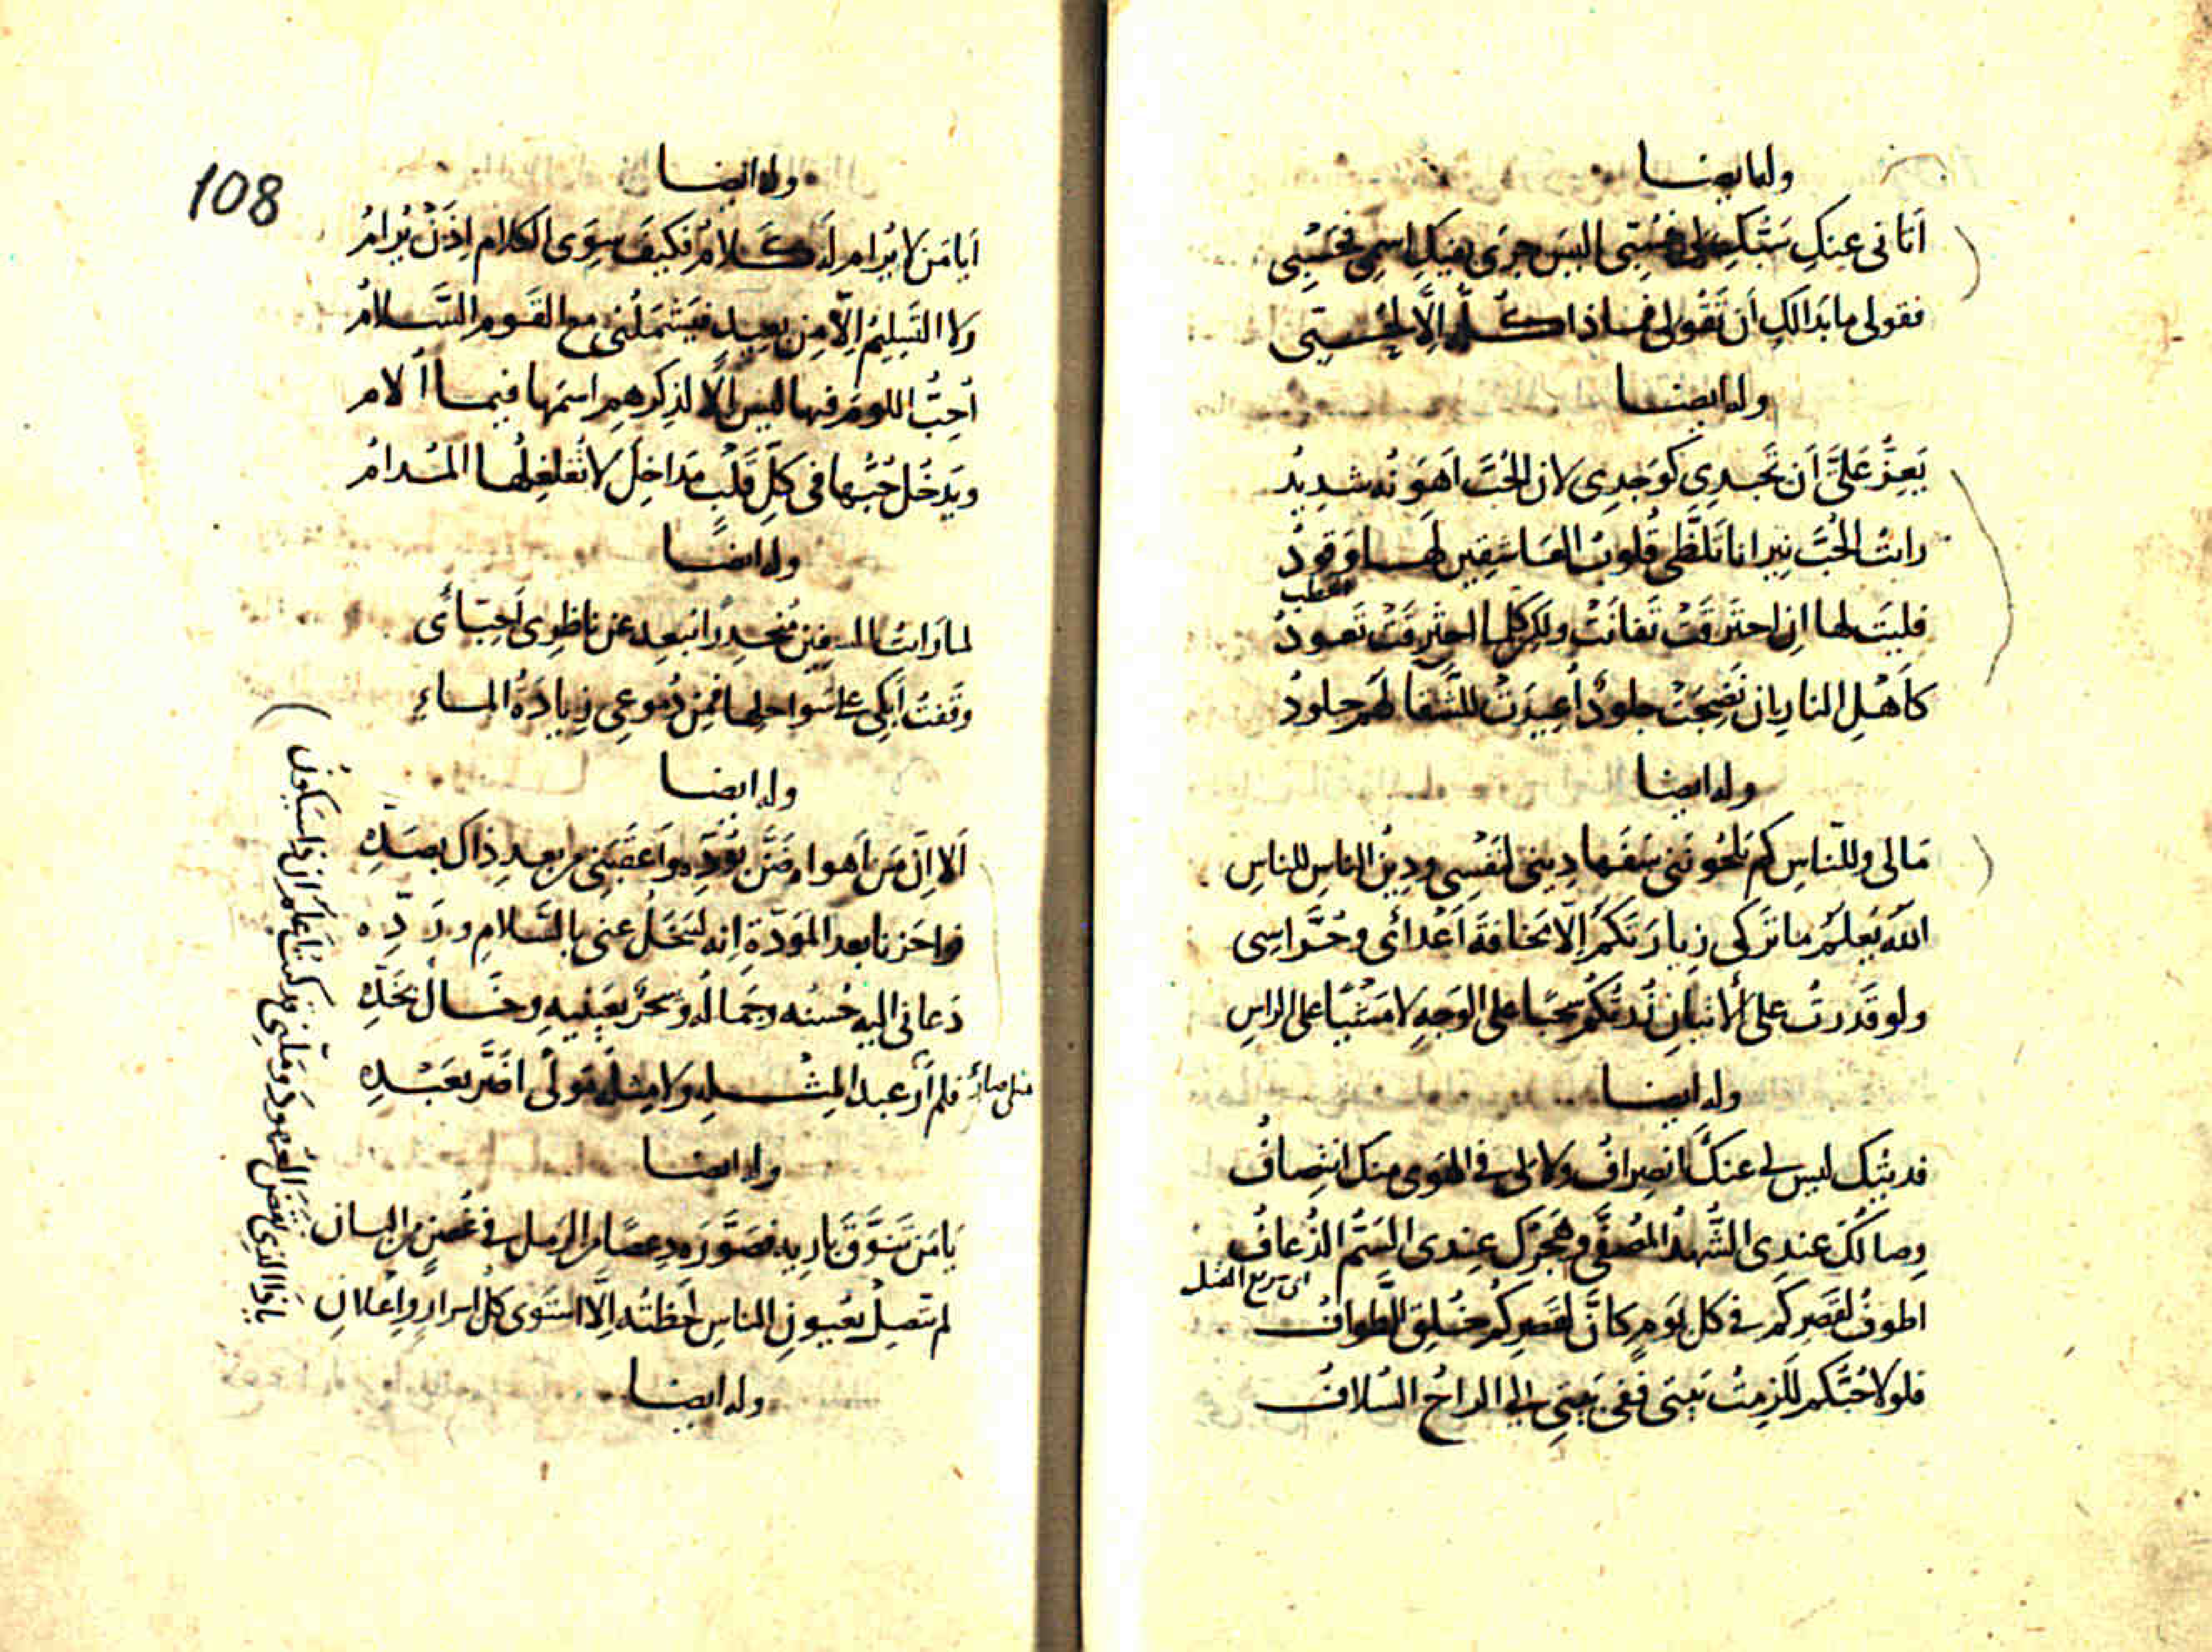 وله ايضا
أتاني عنكِ سَبُّكِ لي فسُبّي اليس جرَى بفيكِ اسمي فحَسْبي
فقولي ما بدا لكِ أن تَقُولي فماذا كلّه إلّا لِحُبّي
وله ايضا
يَعِزُّ عَلَيَّ أن تَجدي كوَجدِي لان الحُبَّ اهوَنُه شديدُ
رايتُ الحُبَّ نِيرانا تَلَظَّى قُلوبُ العاشقين لها وَقودُ
حطب
فليتَ لها اذِ احترقَتْ تَفانَتْ ولكن كلما احترقَتْ تَعودُ
كأهْلِ النار إن نَضِجَتْ جلودٌ أُعِيدَتْ للشَّقا لَهُم جلودُ
وله ايضا
مَالي وللنّاس كم يَلحُونَني سَفَها ديني لنَفسِي ودِينُ الناسِ للناسِ
اللّه يَعلَمُ ما تَركي زِيارَتَكُم إلّا مخافةَ أعدائي وحُرَّاسِي
ولو قَدَرتُ على الاتيانِ زُرتُكُم سَحبًا على الوَجهِ لا مَشْيًا على الراسِ
وله ايضا
فديتُك ليس لي عنكَ انصِرافُ ولا لي في الهَوى منك انتِصافُ
وِصالُكَ عندي الشُّهدُ المُصفَّى وهَجرُكَ عِندي السَّمُّ الذُعافُ
اى سريع القتل
اطوفُ لقَصرِكم في كل يَومٍ كأنَّ لقَصرِكُم خُلِقَ الطَّوافُ
فلولا حُبُّكم لَلَزِمتُ بَيتي ففي بَيتي لي الراحُ السُلافُ
108
وله ايضا
أيا مَن لا يُرامُ له كَلامٌ فكيفَ سِوَى الكلام اِذَنْ يُرامُ
ولا التَسليمُ الّا مِن بعيدٍ فيَشمَلُني مع القَومِ السَّلامُ
أُحِبُّ اللومَ فيها ليس الّا لذِكرهم اسمَها فيما أُلام
ويَدخُل حُبُّها في كلّ قَلبٍ مَداخِلَ لا تُغَلغِلُها المُدامُ
وله ايضا
لما رَايتُ السفينَ مُنحدِرًا تبعِد عن ناظِري أحِبّائي
وقَفتُ أبكي على سَواحلِها فمِن دُموعي زِيادَةُ الماءِ
وله ايضا
ألا اِنّ مَن أهواه ضَنَّ بوُدِّه وأعقَبَني من بعدِ ذاك بصَدِّهِ
فواحَزنا بعد المَوَدّةِ اِنه ليَبخَلُ عني بالسَّلامِ ورَدِّه
دَعاني اليه حُسنُه وجَمالُه وسِحرٌ بعَينيهِ وخالٌ بخَدّه
فلم أرَ عبدا مِثله ولا مِثلَه مَولًى اضَرَّ بعَبْدِه
وله ايضا
يا مَن تَنَوَّقَ باريه فصَوَّرَه دِعصًا من الرَمل في غُصنٍ من البان
لم تتّصِلْ بعُيونِ الناسِ لَحظَتُه اِلّا استَوى كلُّ اسرارٍ وإعلانِ
وله ايضا
يا ذا الذي نقض العُهودَ ومَلّني قد كنتُ أعلَم أن ذا سيكون